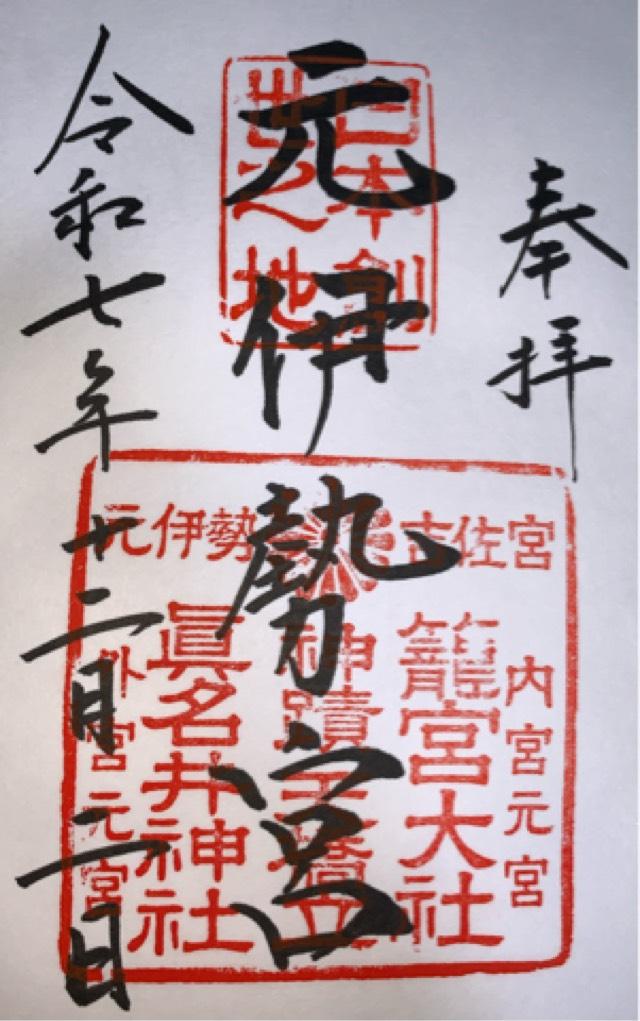 奉拝
元伊勢宮
令和七年十二月二日
日本創
世之地
古佐宮
元伊勢
内宮元宮
籠宮大社
眞名井神社
外宮元宮